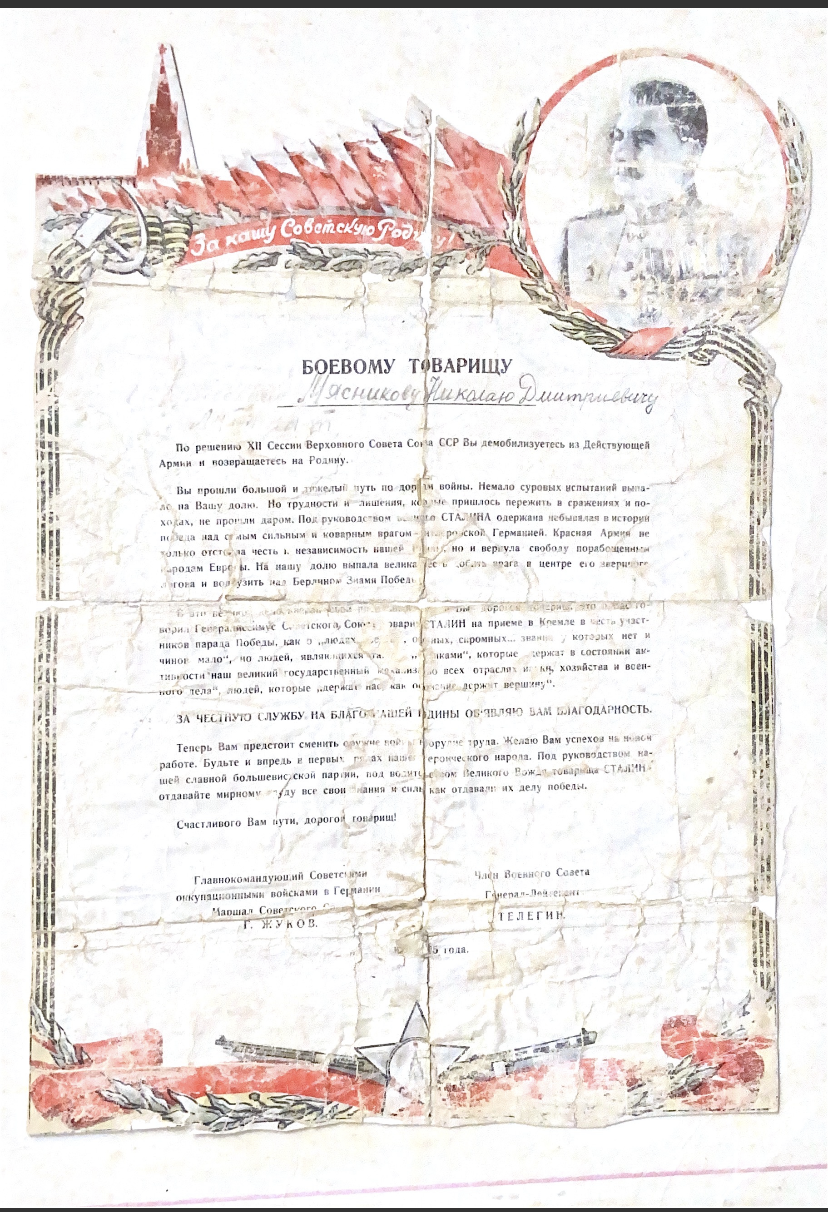 За нашу Советскую Родину!
БОЕВОМУ ТОВАРИЩУ
Мясникову Николаю Дмитриевичу
По решению XII Сессии Верховного Совета Союза ССР Вы демобилизуетесь из Действующей
Армии и возвращаетесь на Родину.
Вы прошли большой и тяжелый путь по дорогам войны. Немало суровых испытаний выпа-
ло на Вашу долю. Но трудности и лишения, которые пришлось пережить в сражениях и по-
ходах, не прошли даром. Под руководством великого СТАЛИНА одержана небывалая в истории
победа над самым сильным и коварным врагом - гитлеровской Германией. Красная Армия не
только отстояла честь и независимость нашей но и вернула свободу порабощенным
народам Европы. На нашу долю выпала добить врага в центре его звериного
логова и водрузить над Берлином Знамя Победы
В это
ворил Генералиссимус Советского Союза товарищ СТАЛИН на приеме в Кремле в честь участ-
ников парада Победы, как о „людях, скромных... у которых нет и
чинов мало", но людей, являющихся которые держат в состоянии ак-
тивности наш великий государственный механизм во всех отраслях хозяйства и воен-
ного дела", людей, которые „держат нас, как основание держит вершину".
ЗА ЧЕСТНУЮ СЛУЖБУ НА БЛАГО НАШЕЙ РОДИНЫ ОБ'ЯВЛЯЮ ВАМ БЛАГОДАРНОСТЬ.
Теперь Вам предстоит сменить оружие войны на орудие труда. Желаю Вам успехов на новой
работе. Будьте и впредь в первых рядах нашего героического народа. Под руководством на-
шей славной большевистской партии, под водительством Великого Вождя товарища СТАЛИНА
отдавайте мирному труду все свои знания и силы, как отдавали их делу победы.
Счастливого Вам пути, дорогой товарищ!
Главнокомандующий Советскими
оккупационными войсками в Германии
Маршал Советского
Г. ЖУКОВ.
Член Военного Совета
Генерал-Лейтенант
ТЕЛЕГИН.
5 года.